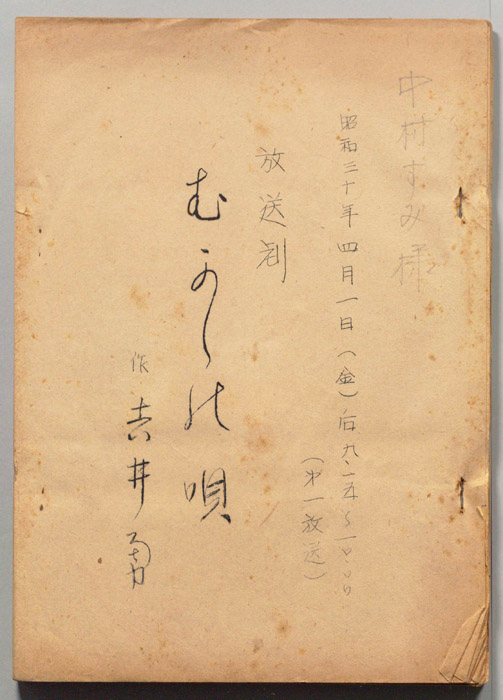 中村すみ様
昭和三十年四月一日(金)后九・一五〜一〇・〇〇
(第一放送)
放送劇
むかしの唄
作 吉井勇